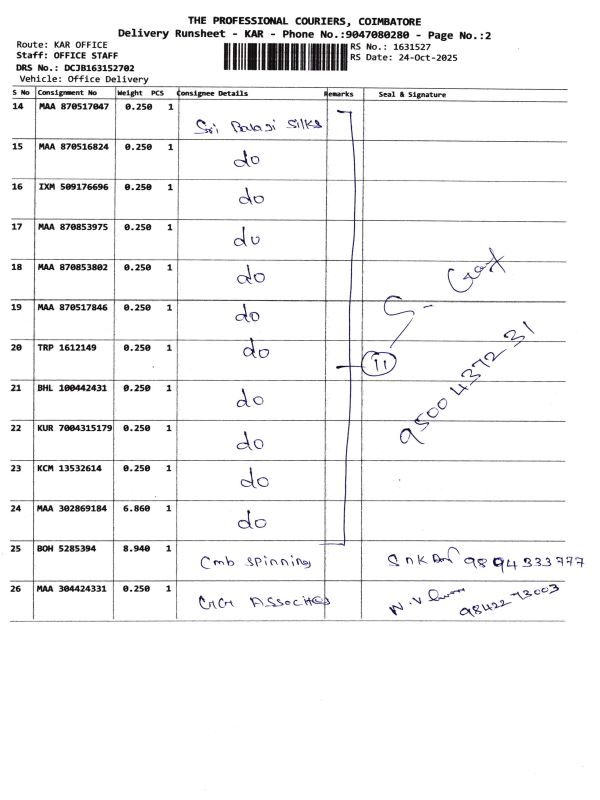 THE PROFESSIONAL COURIERS, COIMBATORE
Delivery Runsheet - KAR - Phone No.:9047080280 - Page No.:2
Route: KAR OFFICE
RS No.: 1631527
Staff: OFFICE STAFF
RS Date: 24-Oct-2025
DRS No.: DCJB163152702
Vehicle: Office Delivery
S No Consignment No Weight PCS Consignee Details Remarks Seal & Signature
14 MAA 870517047 0.250 1 Sri Balaji Silks
15 MAA 870516824 0.250 1 do
16 IXM 509176696 0.250 1 do
17 MAA 870853975 0.250 1 do
18 MAA 870853802 0.250 1 do
19 MAA 870517846 0.250 1 do
20 TRP 1612149 0.250 1 do 11
9500 4372 31
21 BHL 100442431 0.250 1 do
22 KUR 7004315179 0.250 1 do
23 KCM 13532614 0.250 1 do
24 MAA 302869184 6.860 1 do
25 BOH 5285394 8.940 1 Cmb Spinning 9894333777
26 MAA 304424331 0.250 1 Assocites 9842273003